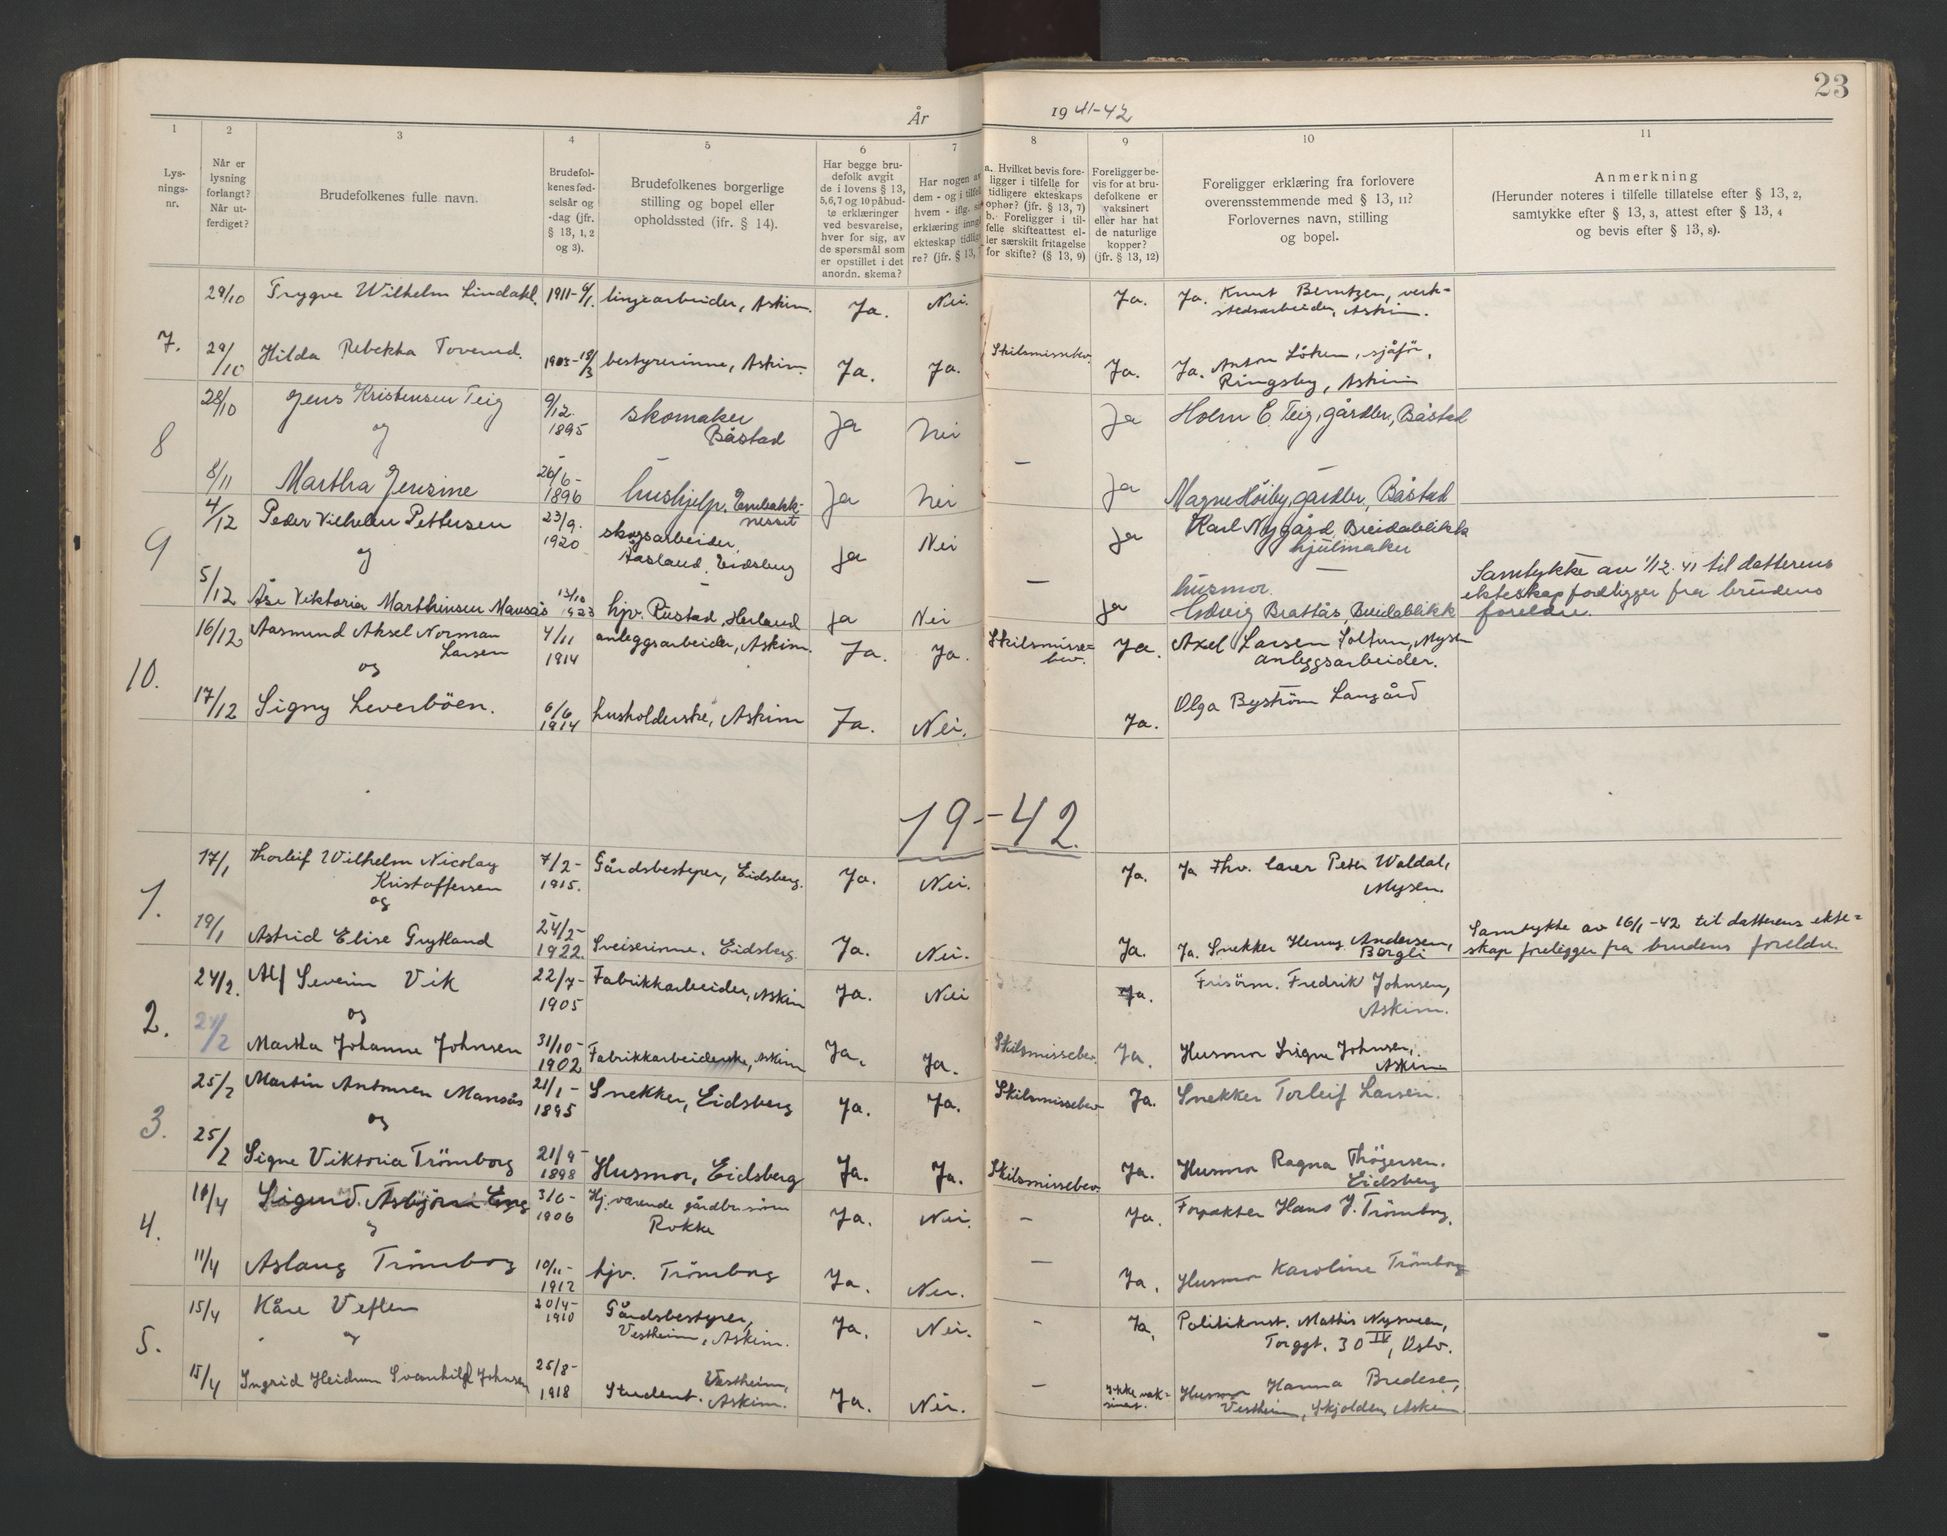 23
År 19 41-42
1 2 3 4 5 6 7 8 9 10 11
Lys-
nings-
nr.
Når er
lysning
forlangt?
Når ut-
ferdiget?
Brudefolkenes fulle navn.
Brudefol-
kenes fød-
selsår og
-dag (jfr.
§ 13, 1, 2
og 3).
Brudefolkenes borgerlige
stilling og bopel eller
opholdssted (ifr. § 14).
Har begge bru-
defolk avgit
de i lovens § 13,
5,6,7 og 10 påbud-
te erklæringer
ved besvarelse,
hver for sig, av
de spørsmål som
er opstillet i det
anordn. skema?
Har nogen av
dem - og i tilfel
hvem - iflg. si
erklæring inng
ekteskap tidlig
re? (jfr. § 13,
a. Hvilket bevis fore-
ligger i tilfelle for
tidligere ekteskaps
ophør? (jfr. § 13, 7)
b. Foreligger i til-
felle skifteattest el-
ler særskilt fritagelse
for skifte? (§ 13, 9)
Foreligger be-
vis for at bru-
defolkene er
vaksinert
eller har hat
de naturlige
kopper?
(jfr. § 13, 12)
Foreligger erklæring fra forlovere
overensstemmende med § 13, 11?
Forlovernes navn, stilling
og bopel.
Anmerkning
(Herunder noteres i tilfelle tillatelse efter § 13, 2,
samtykke efter § 13, 3, attest efter § 13, 4
og bevis efter § 13, 8).
29/10 Trygve Wilhelm Lindahl. 1911-6/1. linjearbeider, Askim. Ja. Nei. Ja. Ja. Knut Berntzen, verk-
stedsarbeider, Askim.
7. 29/10 Hilda Rebekka Toverud. 1903-18/3 bestyrerinne, Askim. Ja. Ja. Skilsmissebev. Ja. Ja. Anton Löken, sjåför,
Ringsby, Askim
28/10 Jens Kristensen Teig 9/12. 1895 skomaker Båstad Ja Nei Ja Holm E. Teig, gårdbr, Båstad
8 og
8/11 Martha Jensine 26/6- 1896 hushjelp. Enebakk-
nesset Ja Nei — Ja Magne Höiby, gårdbr, Båstad
4/12 Peder Vilhelm Pettersen 23/9. 1920 skogsarbeider, Aasland, Eidsberg Ja Nei Ja Karl Nygård, Breidablikk
hjulmaker
9 og
5/12 Åse Viktoria Marthinsen Mansås 13/10 1923 hjv. Rustad, Herland Ja Nei — Ja husmor
Ludvig Brattås, Breidablikk Samtykke av 1/12. 41 til datterens
ekteskap foreligger fra brudens
foreldre.
16/12 Aasmund Aksel Norman
Larsen 4/11 1914 anleggsarbeider, Askim. Ja. Ja. Skilsmisse-
bev. Ja. Axel Larsen Solfun, Mysen
anleggsarbeider.
10. og
17/12 Signy Leverböen. 6/6 1914 husholderske, Askim Ja. Nei. Ja. Olga Byström Langård
19-42.
17/1 Thorleif Wilhelm Nicolay
Kristoffersen 7/2- 1915. Gårdsbestyrer, Eidsberg. Ja. Nei. Ja. Ja Fhv. lærer Peter Waldal,
Mysen.
1. og
19/1 Astrid Elise Grytland 24/2- 1922. Sveiserinne. Eidsberg. Ja. Nei. Ja. Ja. Snekker Henry Andersen,
Borgli Samtykke av 16/1-42 til datterens ekte=
skap foreligger fra brudens foreldre
24/2. Alf Severin Vik 22/7- 1905 Fabrikkarbeider, Askim Ja. Nei Ja. Frisörm. Fredrik Johnsen,
Askim.
2. og
24/2 Martha Johanne Johnsen 31/10- 1902 Fabrikkarbeiderske, Askim Ja. Ja. Skilsmissebev. Ja. Husmor Signe Johnsen,
Askim
25/2 Martin Antonsen Mansås 21/1- 1895 Snekker, Eidsberg Ja. Ja. Skilsmissebev Ja. Snekker Torleif Larsen.
3. og
25/2 Signe Viktoria Trömborg 21/9- 1898 Husmor, Eidsberg Ja. Ja. Skilsmissebev. Ja. Husmor Ragna Thögersen.
Eidsberg
11/4 Sigurd. Asbjörn Eng 3/6- 1906 Hj. værende gårdbr. sönn
Rokke Ja. Nei. - Ja. Forpakter Hans J. Trömborg.
4. og
11/4 Aslaug Trömborg 10/11- 1912 hjv. Trömborg Ja. Nei. — Ja. Husmor Karoline Trömborg
15/4 Kåre Veflen 20/4- 1910 Gårdsbestyrer,
Vestheim, Askim. Ja. Nei. - Ja, Politikonst. Mathis Nysveen,
Torggt. 30 IV, Oslo.
5. og
15/4 Ingrid Heidrun Svanhild Johnsen 25/8- 1918 Student. Vestheim,
Askim. Ja. Nei. — Ikke vak-
sinert. Husmor Hanna Bredesen,
Vestheim, Skjolden, Askim.